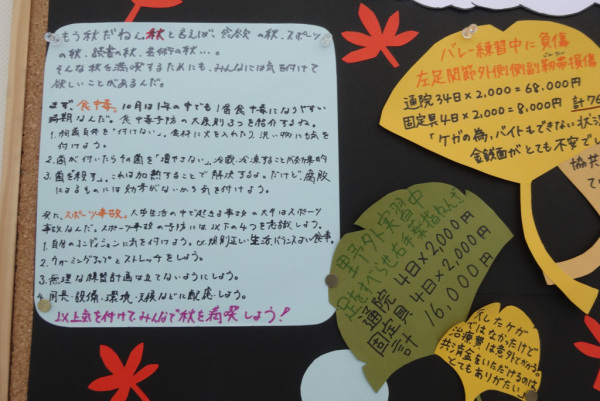 もう秋だねん。秋と言えば、食欲の秋、スポーツ
の秋、読書の秋、芸術の秋・・・。
そんな秋を満喫するためにも、みんなには気を付けて
欲しいことがあるんだ。
まず、食中毒。10月は1年の中でも1番食中毒になりやすい
時期なんだ。食中毒予防の大原則3つを紹介するね。
1. 細菌自体を「付けない」。食材に火を入れたり、洗い物にも気を
付けよう。
2. 菌が付いたらその菌を「増やさない」。冷蔵、冷凍することが効果的
3. 菌を「殺す」。これは加熱することで解決するよ。だけど、腐敗
によるものには効き目がないから気を付けよう。
次に、スポーツ事故。大学生活の中で起きる事故の大半はスポーツ
事故なんだ。スポーツ事故の予防には以下の4つを意識しよう。
1. 自分のコンディションに気を付けよう。規則正しい生活、バランスよい食事。
2. ウォーミングアップとストレッチをしよう。
3. 無理な練習計画は立てないようにしよう。
4. 用具・設備・環境・天候などに配慮しよう。
以上気を付けてみんなで秋を満喫しよう!
バレー練習中に負傷
左足関節外側側副靭帯損傷
通院34日×2,000=68,000円
固定具4日×2,000=8,000円 計76
「ケガの為、バイトもできない状
金銭面がとても不安でし
協共
て
野外実習中
足をすべらせ右手拳指ねんざ
通院 4日×2,000円
固定具 4日×2,000円
計 16,000円
したケガ
ではなかったけど
治療費は意外とかかる。
共済金をいただけるのは
とてもありがたい」